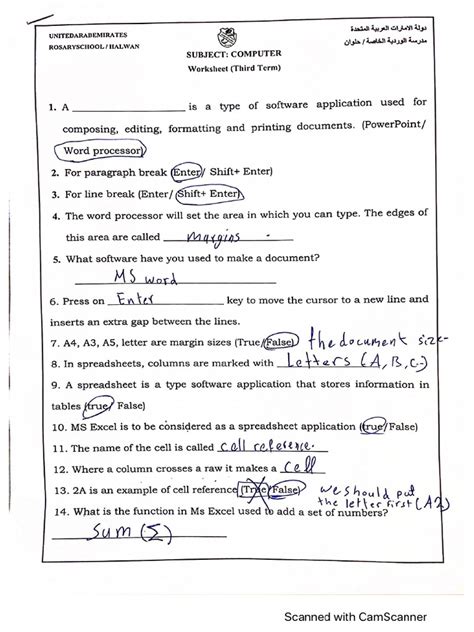 UNITEDARABEMIRATES
ROSARYSCHOOL / HALWAN
دولة الامارات العربية المتحدة
مدرسة الوردية الخاصة / حلوان
SUBJECT: COMPUTER
Worksheet (Third Term)
1. A ____________ is a type of software application used for
composing, editing, formatting and printing documents. (PowerPoint/
Word processor)
2. For paragraph break (Enter/ Shift+ Enter)
3. For line break (Enter/ Shift+ Enter)
4. The word processor will set the area in which you can type. The edges of
this area are called margins.
5. What software have you used to make a document?
MS word
6. Press on Enter key to move the cursor to a new line and
inserts an extra gap between the lines.
7. A4, A3, A5, letter are margin sizes (True/False) the document size
8. In spreadsheets, columns are marked with Letters (A, B, C.)
9. A spreadsheet is a type software application that stores information in
tables (true/ False)
10. MS Excel is to be considered as a spreadsheet application (true/False)
11. The name of the cell is called cell reference.
12. Where a column crosses a raw it makes a cell
13. 2A is an example of cell reference (True/False) we should put
the letter first (A2)
14. What is the function in Ms Excel used to add a set of numbers?
Sum (Σ)
Scanned with CamScanner